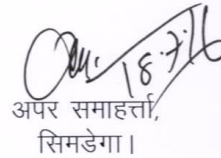 18.7.16
अपर समाहर्त्ता,
सिमडेगा।